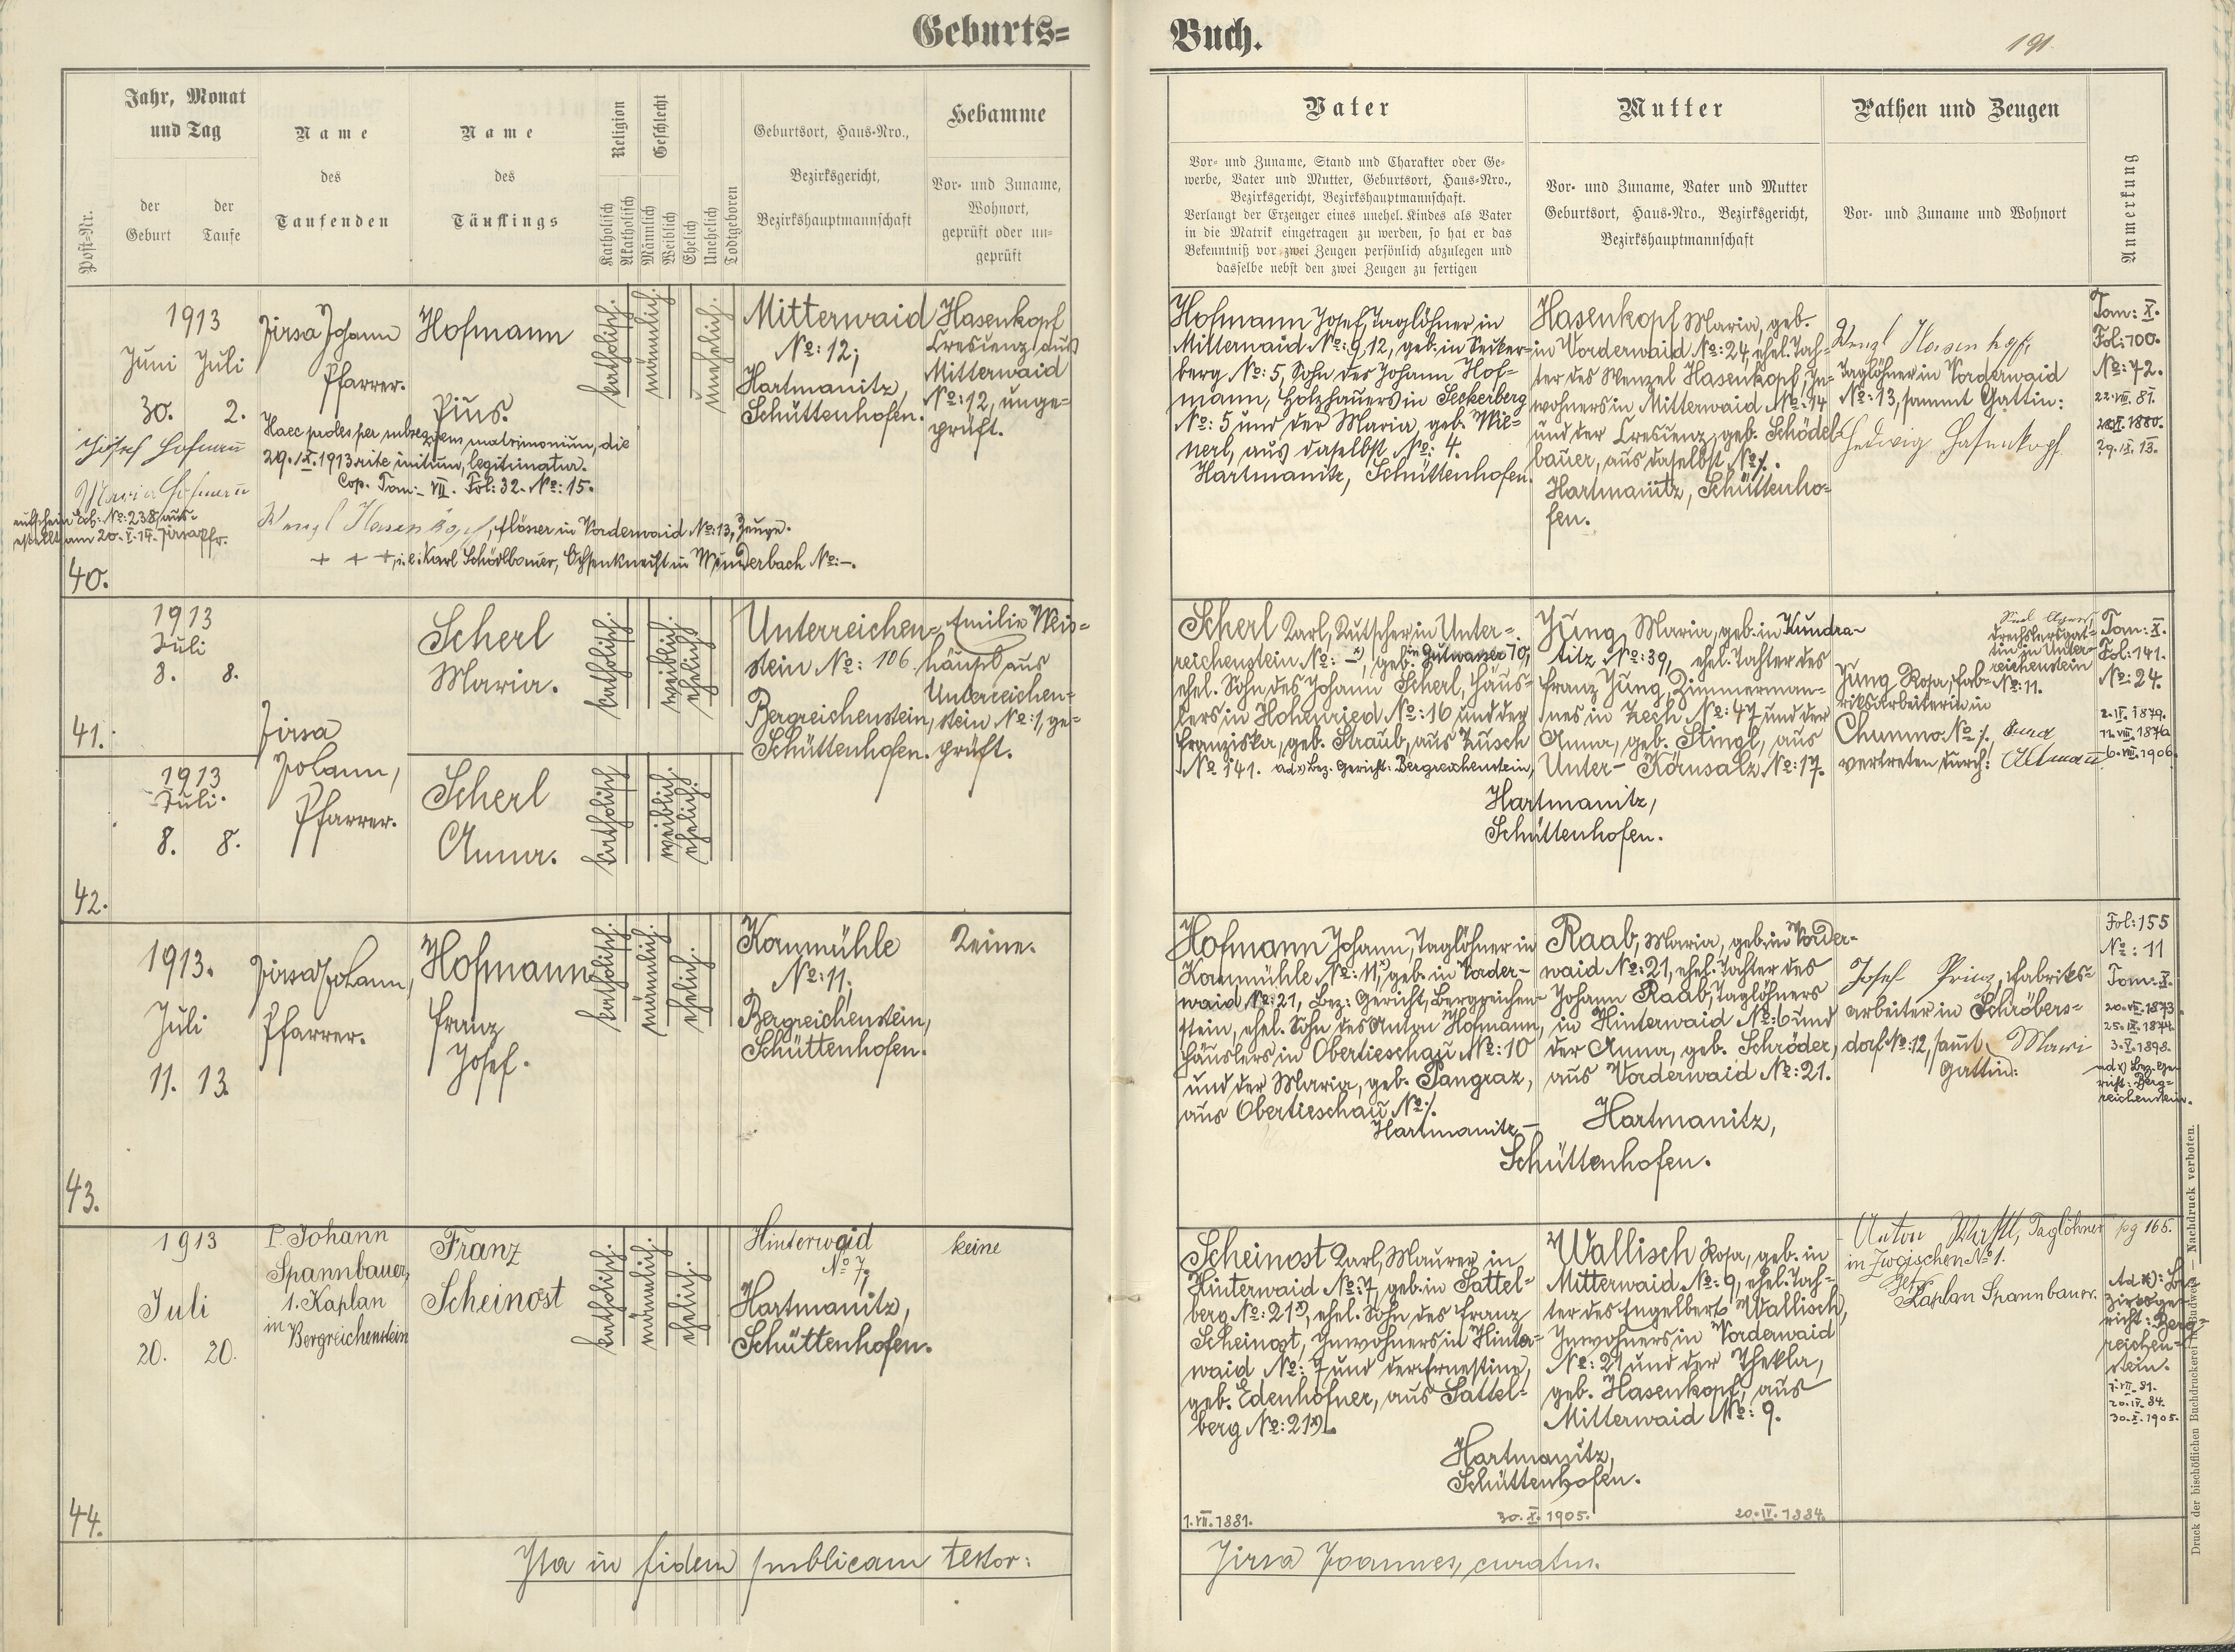 Geburts=
Buch.
191
Post-Nr.
Jahr, Monat
und Tag
der
Geburt
der
Taufe
Name
des
Taufenden
Name
des
Täuflings
Religion
Katholisch
Akatholisch
Geschlecht
Männlich
Weiblich
Ehelich
Unehelich
Todtgeboren
Geburtsort, Haus-Nro.,
Bezirksgericht,
Bezirkshauptmannschaft
Hebamme
Vor- und Zuname,
Wohnort,
geprüft oder un-
geprüft
Vater
Vor- und Zuname, Stand und Charakter oder Ge-
werbe, Vater und Mutter, Geburtsort, Haus-Nro.,
Bezirksgericht, Bezirkshauptmannschaft.
Verlangt der Erzeuger eines unehel. Kindes als Vater
in die Matrik eingetragen zu werden, so hat er das
Bekenntniß vor zwei Zeugen persönlich abzulegen und
dasselbe nebst den zwei Zeugen zu fertigen
Mutter
Vor- und Zuname, Vater und Mutter
Geburtsort, Haus-Nro., Bezirksgericht,
Bezirkshauptmannschaft
Pathen und Zeugen
Vor- und Zuname und Wohnort
Anmerkung
40.
1913
Juni Juli
30. 2.
Jirsa Johann
Pfarrer.
Hofmann
Pius.
katholisch.
männlich.
unehelich.
Mitterwaid
No: 12;
Hartmanitz,
Schüttenhofen.
Hasenkopf
Crescenz aus
Mitterwaid
No: 12, unge-
prüft.
Josef Hofmann
Maria Hofmann
Haec proles per subsequens matrimonium, die
29. IX. 1913 rite initum, legitimatur.
Cop. Tom: VII. Fol: 32. No: 15.
No: 238 aus-
am 20. V. 14. Jirsa Pfr.
Wenzl Hasenkopf, Flösser in Vorderwaid No: 13, Zeuge.
+ + +, i. e. Karl Schödlbauer, Ochsenknecht in Wunderbach No: -.
Hofmann Josef, Taglöhner in
Mitterwaid No: 9, 12, geb. in Secker-
berg No: 5, Sohn des Johann Hof-
mann, Holzhauers in Seckerberg
No: 5 und der Maria, geb. Wil-
nerl, aus daselbst No: 4.
Hartmanitz, Schüttenhofen.
Hasenkopf Maria, geb.
in Vorderwaid No: 24, ehel. Toch-
ter des Wenzel Hasenkopf, In-
wohners in Mitterwaid No: 14
und der Crescenz, geb. Schödel-
bauer, aus daselbst No: /.
Hartmanitz, Schüttenho-
fen.
Wenzl Hasenkopf,
Taglöhner in Vorderwaid
No: 13, sammt Gattin:
Hedwig Hasenkopf
Tom: X.
Fol: 100.
No: 72.
22. VII. 81.
1880.
29. IX. 13.
41.
1913
Juli
8. 8.
Jirsa
Johann,
Pfarrer.
Scherl
Maria.
katholisch.
weiblich.
ehelich.
Unterreichen-
stein No: 106.
Bergreichenstein,
Schüttenhofen.
Emilie Weis-
häupl aus
Unterreichen-
stein No: /, ge-
prüft.
Scherl Karl, Kutscher in Unter-
reichenstein No: - x), geb. in Gutwasser 70,
ehel. Sohn des Johann Scherl, Häus-
lers in Hohenried No: 16 und der
Franziska, geb. Straub, aus Zusch
No 141. ad x) Bez. Gericht: Bergreichenstein,
Jung Maria, geb. in Kundra-
titz No: 39, ehel. Tochter des
Franz Jung, Zimmerman-
nes in Zech No: 47 und der
Anna, geb. Stingl, aus
Unter- Körnsalz No: 17.
Hartmanitz,
Schüttenhofen.
Drechslersgat-
tin in Unter-
reichenstein
No: 11.
Jung Rosa, Fab-
riksarbeiterin in
Chumno No: /,
vertreten durch:
Tom: X.
Fol: 141.
No: 24.
2. IV. 1879.
11. VIII. 1876
6. VIII. 1906.
42.
1913
Juli.
8. 8.
Scherl
Anna.
katholisch
weiblich.
ehelich.
43.
1913.
Juli
11. 13.
Jirsa Johann,
Pfarrer.
Hofmann
Franz
Josef.
katholisch.
männlich.
ehelich.
Kornmühle
No: 11;
Bergreichenstein,
Schüttenhofen.
Keine.
Hofmann Johann, Taglöhner in
Kornmühle, No: 11 x), geb. in Vorder-
waid No: 21, Bez: Gericht, Bergreichen-
stein, ehel. Sohn des Anton Hofmann,
Häuslers in Obertieschau No: 10
und der Maria, geb. Pangraz,
aus Obertieschau No: /.
Hartmanitz,
Raab, Maria, geb. in Vorder-
waid No: 21, ehel. Tochter des
Johann Raab, Taglöhners
in Hinterwaid No: 6 und
der Anna, geb. Schröder,
aus Vorderwaid No: 21.
Hartmanitz,
Schüttenhofen.
Josef Prinz, Fabriks-
arbeiter in Schröbers-
dorf No: 12, samt Mari
Gattin:
Fol: 155
No: 11
Tom: X.
20. VII. 1873
25. IX. 1874.
3. X. 1898.
ad x) Bez. Ge-
richt: Berg-
reichenstein.
44.
1913
Juli
20. 20.
P. Johann
Spannbauer,
1. Kaplan
in
Bergreichenstein
Franz
Scheinost
katholisch.
männlich.
ehelich.
Hinterwaid
No 7;
Hartmanitz,
Schüttenhofen.
keine
Scheinost Karl, Maurer in
Hinterwaid No: 7, geb. in Sattel-
berg No: 21 x), ehel. Sohn des Franz
Scheinost, Inwohners in Hinter-
waid No: 7 und der Ernestine,
geb. Edenhofner, aus Sattel-
berg No: 21 x).
Wallisch Rosa, geb. in
Mitterwaid No: 9, ehel. Toch-
ter des Engelbert Wallisch,
Inwohners in Vorderwaid
No: 21 und der Thekla,
geb. Hasenkopf, aus
Mitterwaid No: 9.
Hartmanitz,
Schüttenhofen.
Anton Taglöhner
in Zwoischen No 1.
Kaplan Spannbauer.
pg 165.
Ad x): Be-
zirksge-
richt: Berg-
reichen-
stein.
1. VII. 81.
20. IV. 84.
30. X. 1905.
1. VII. 1881.
30. X. 1905.
20. IV. 1884.
Ita in fidem publicam testor:
Jirsa Joannes, curatus.
Druck der bischöflichen Buchdruckerei in Budweis — Nachdruck verboten.